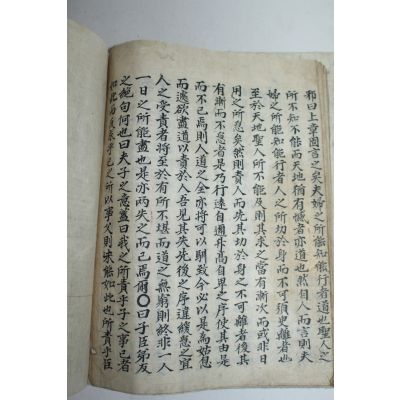 邪曰上章固言之矣夫婦之所能知能行者道也聖人之
所不知不能而天地猶有憾者亦道也然自人而言則夫
婦之所能知能行者人之所切於身而不可須臾離者也
至於天地聖人所不能及則其求之當有漸次而或非日
用之所急矣然則責人而先其切於身之不可離者後其
有漸而不急者是乃行遠自邇升高自卑之序使其由是
而不已焉則人道之全亦將可以馴致今必以是爲姑息
而遽欲盡道以責於人吾見其失先後之序違緩急之宜
人之受責者將至於有所不堪而道之無窮則終非一人
一日之所能盡也是亦兩失之而已焉爾〇曰子臣弟友
之絕句何也曰夫子之意蓋曰我之所責乎子之事己者
如此而反求乎己之所以事父則未能如此也所責乎臣